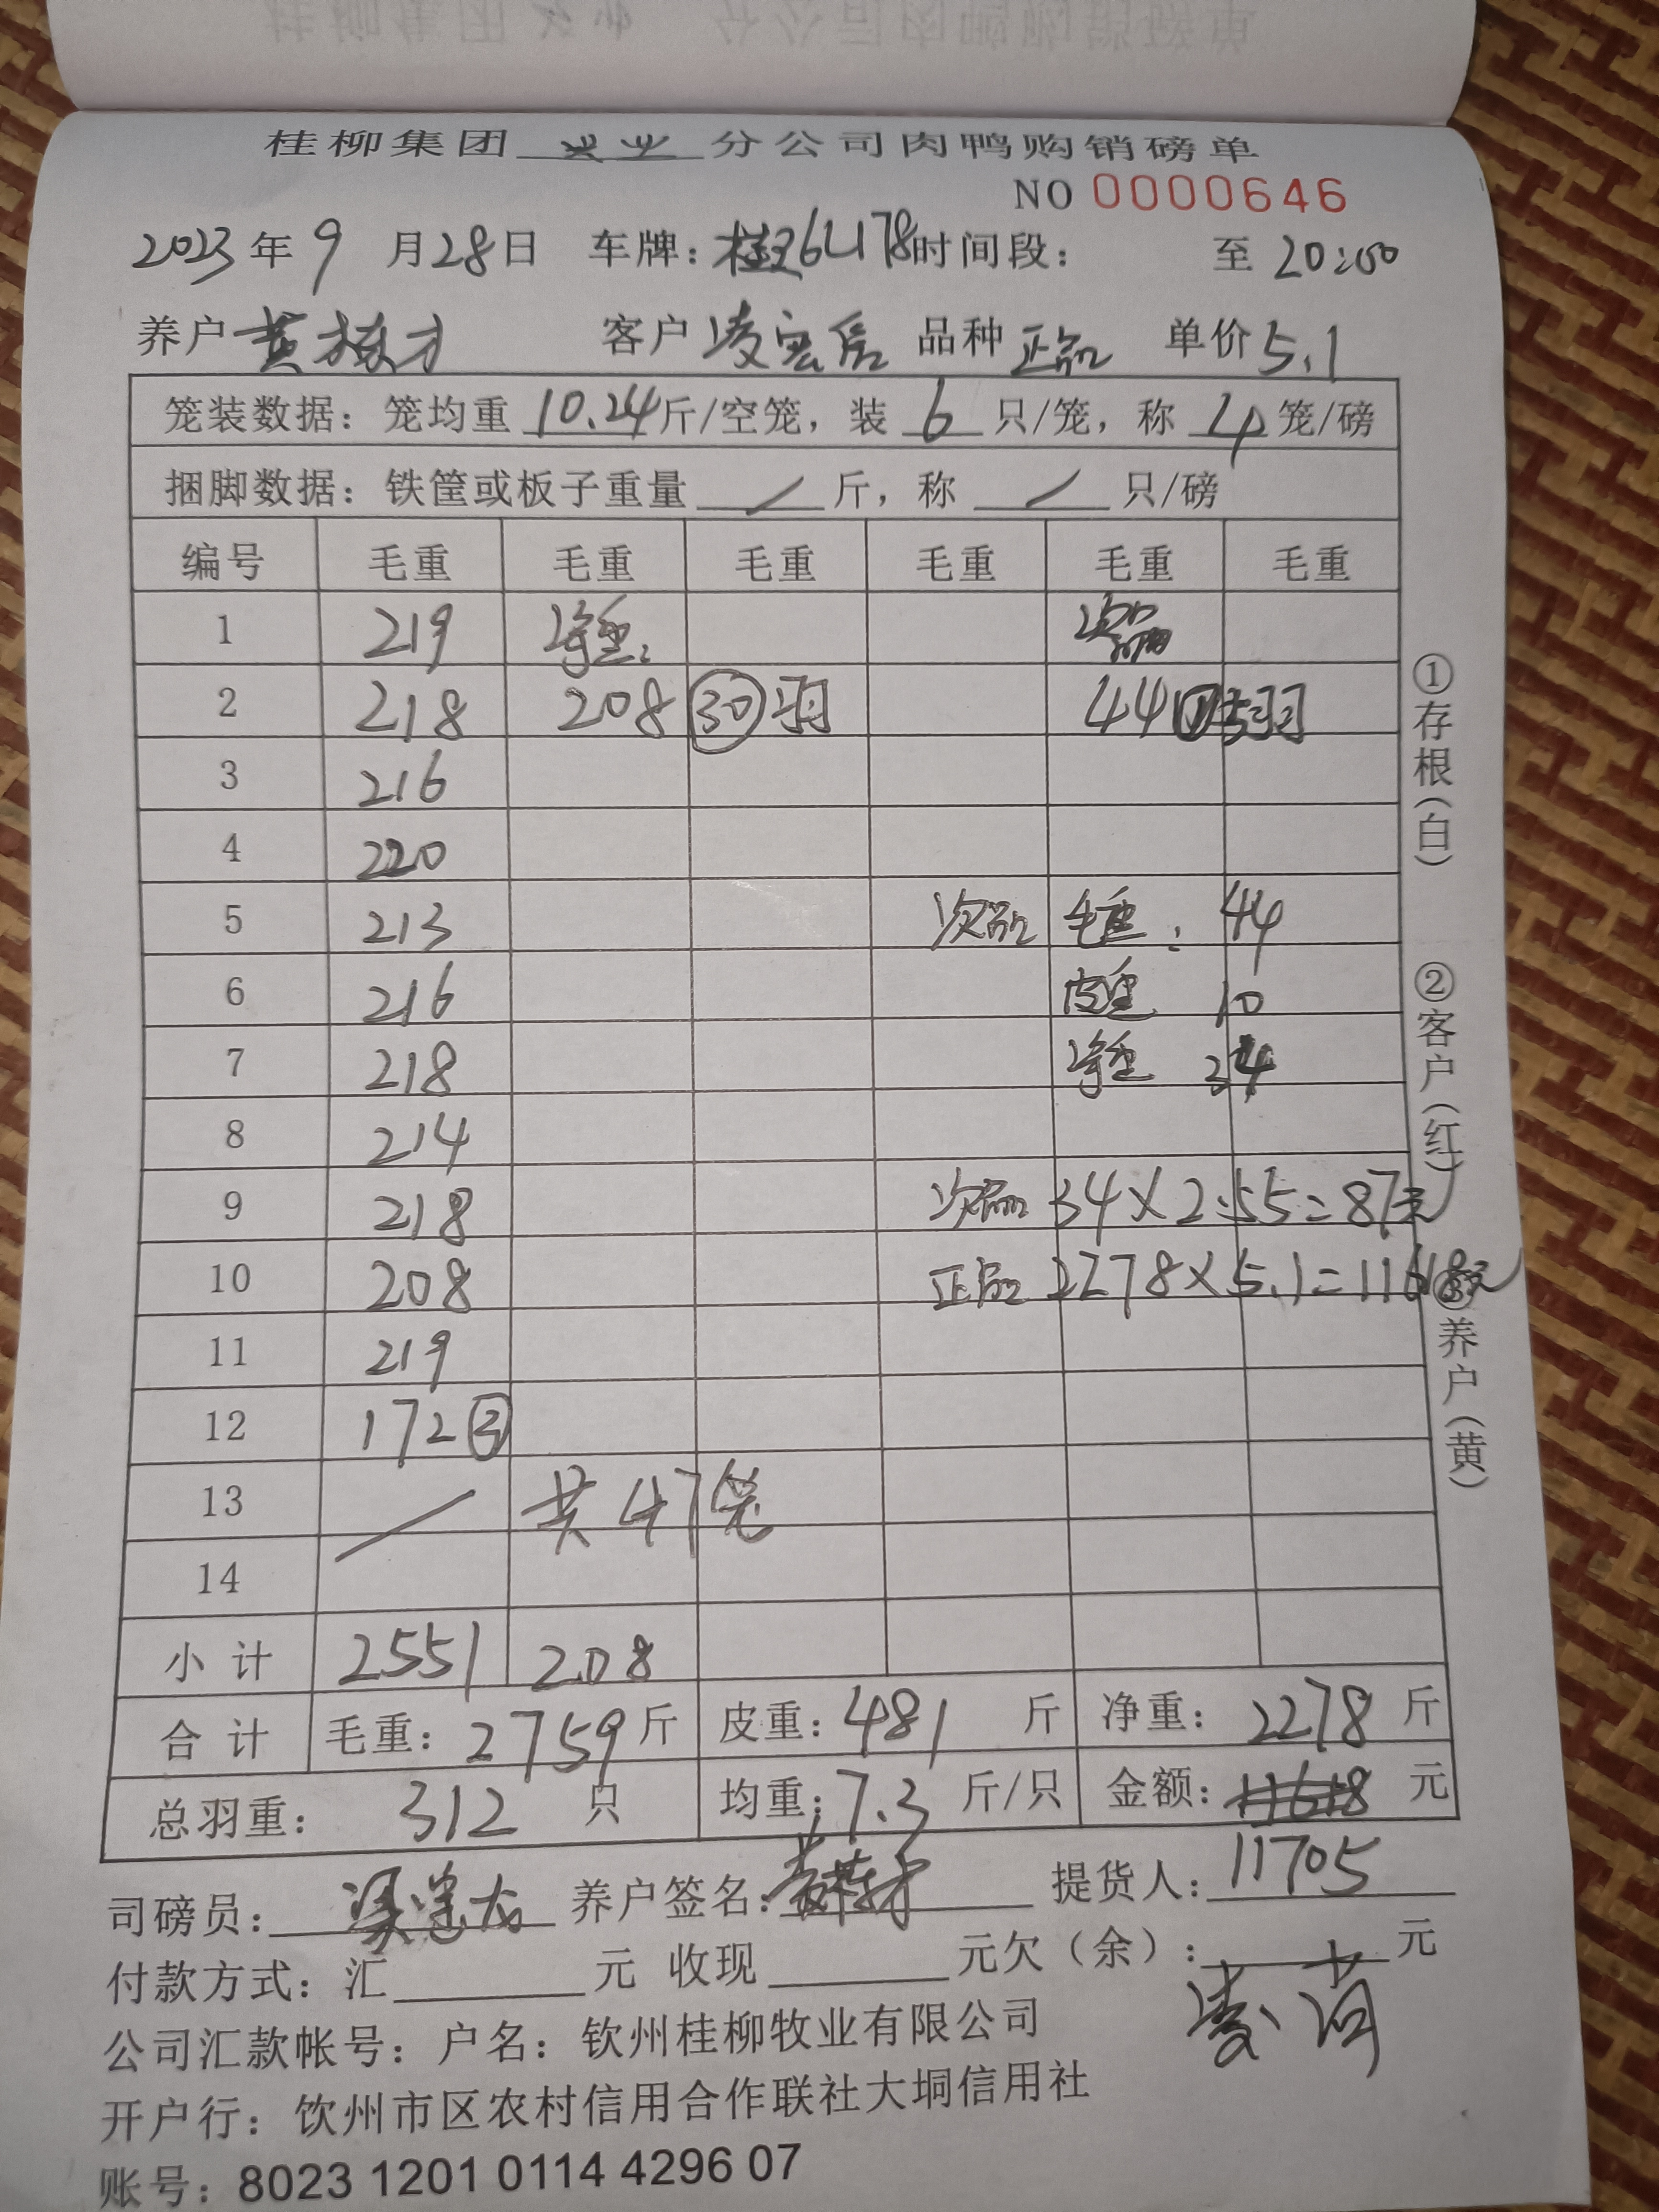 桂柳集团 兴业 分公司肉鸭购销磅单
NO 0000646
2023年9月28日 车牌: 时间段: 至 20:00
养户 黄栋才 客户 凌宏 品种 正品 单价 5.1
笼装数据: 笼均重 10.24 斤/空笼, 装 6 只/笼, 称 4 笼/磅
捆脚数据: 铁筐或板子重量 / 斤, 称 / 只/磅
编号 毛重 毛重 毛重 毛重 毛重 毛重
1 219 净重: 次品
2 218 208 30 羽 44 ① 5羽
3 216
4 220
5 213 次品 毛重: 44
6 216 皮重 10
7 218 净重 34
8 214
9 218 次品 34×2.55=87元
10 208 正品 2278×5.1=11618元
11 219
12 172 ③
13 / 共47笼
14
小计 2551 208
合计 毛重: 2759 斤 皮重: 481 斤 净重: 2278 斤
总羽重: 312 只 均重: 7.3 斤/只 金额: 11618 元
司磅员: 养户签名: 黄栋才 提货人: 11705
付款方式: 汇 元 收现 元欠(余): 元
公司汇款帐号: 户名: 钦州桂柳牧业有限公司
开户行: 饮州市区农村信用合作联社大垌信用社
账号: 8023 1201 0114 4296 07
①存根(白)
②客户(红)
③养户(黄)